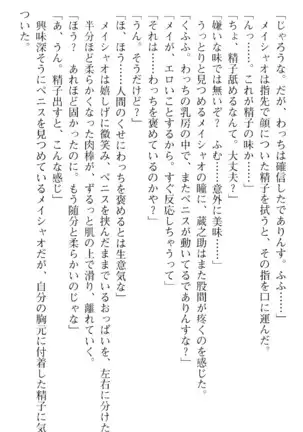 「じゃろうな。だが、わっちは確信したでありんす。ふふ……」
メイシャオは指先で顔についた精子を拭うと、その指を口に運んだ。
「んっ……。これが精子の味か……」
「ちょ、精子舐めるなんて。大丈夫？」
「嫌いな味では無いぞ？　ふむ……意外に美味……」
うっとりと見つめるメイシャオの瞳に、蔵之助はまた股間が疼くのを感じた。
「くふふ。わっちの乳房の中で、またペニスが動いてるでありんすな？」
「メイが、エロいことするから。すぐ反応しちゃうって」
「それは、わっちを褒めているのかや？」
「うん。そうだけど？」
「ほ、ほう……人間のくせにわっちを褒めるとは生意気な」
メイシャオは嬉しげに微笑み、ペニスを挟んだままでいるおっぱいを、左右に分けた。
半分ほど柔らかくなった肉棒が、ずるっと肌の上で滑り、離れていく。
「ほう？　あれほど固かったのに。もう随分と柔らかいのじゃな」
「あ、うん。精子出すと、こんな感じ」
興味深そうにペニスを見つめているメイシャオだが、自分の胸元に付着した精子に気
ついた。